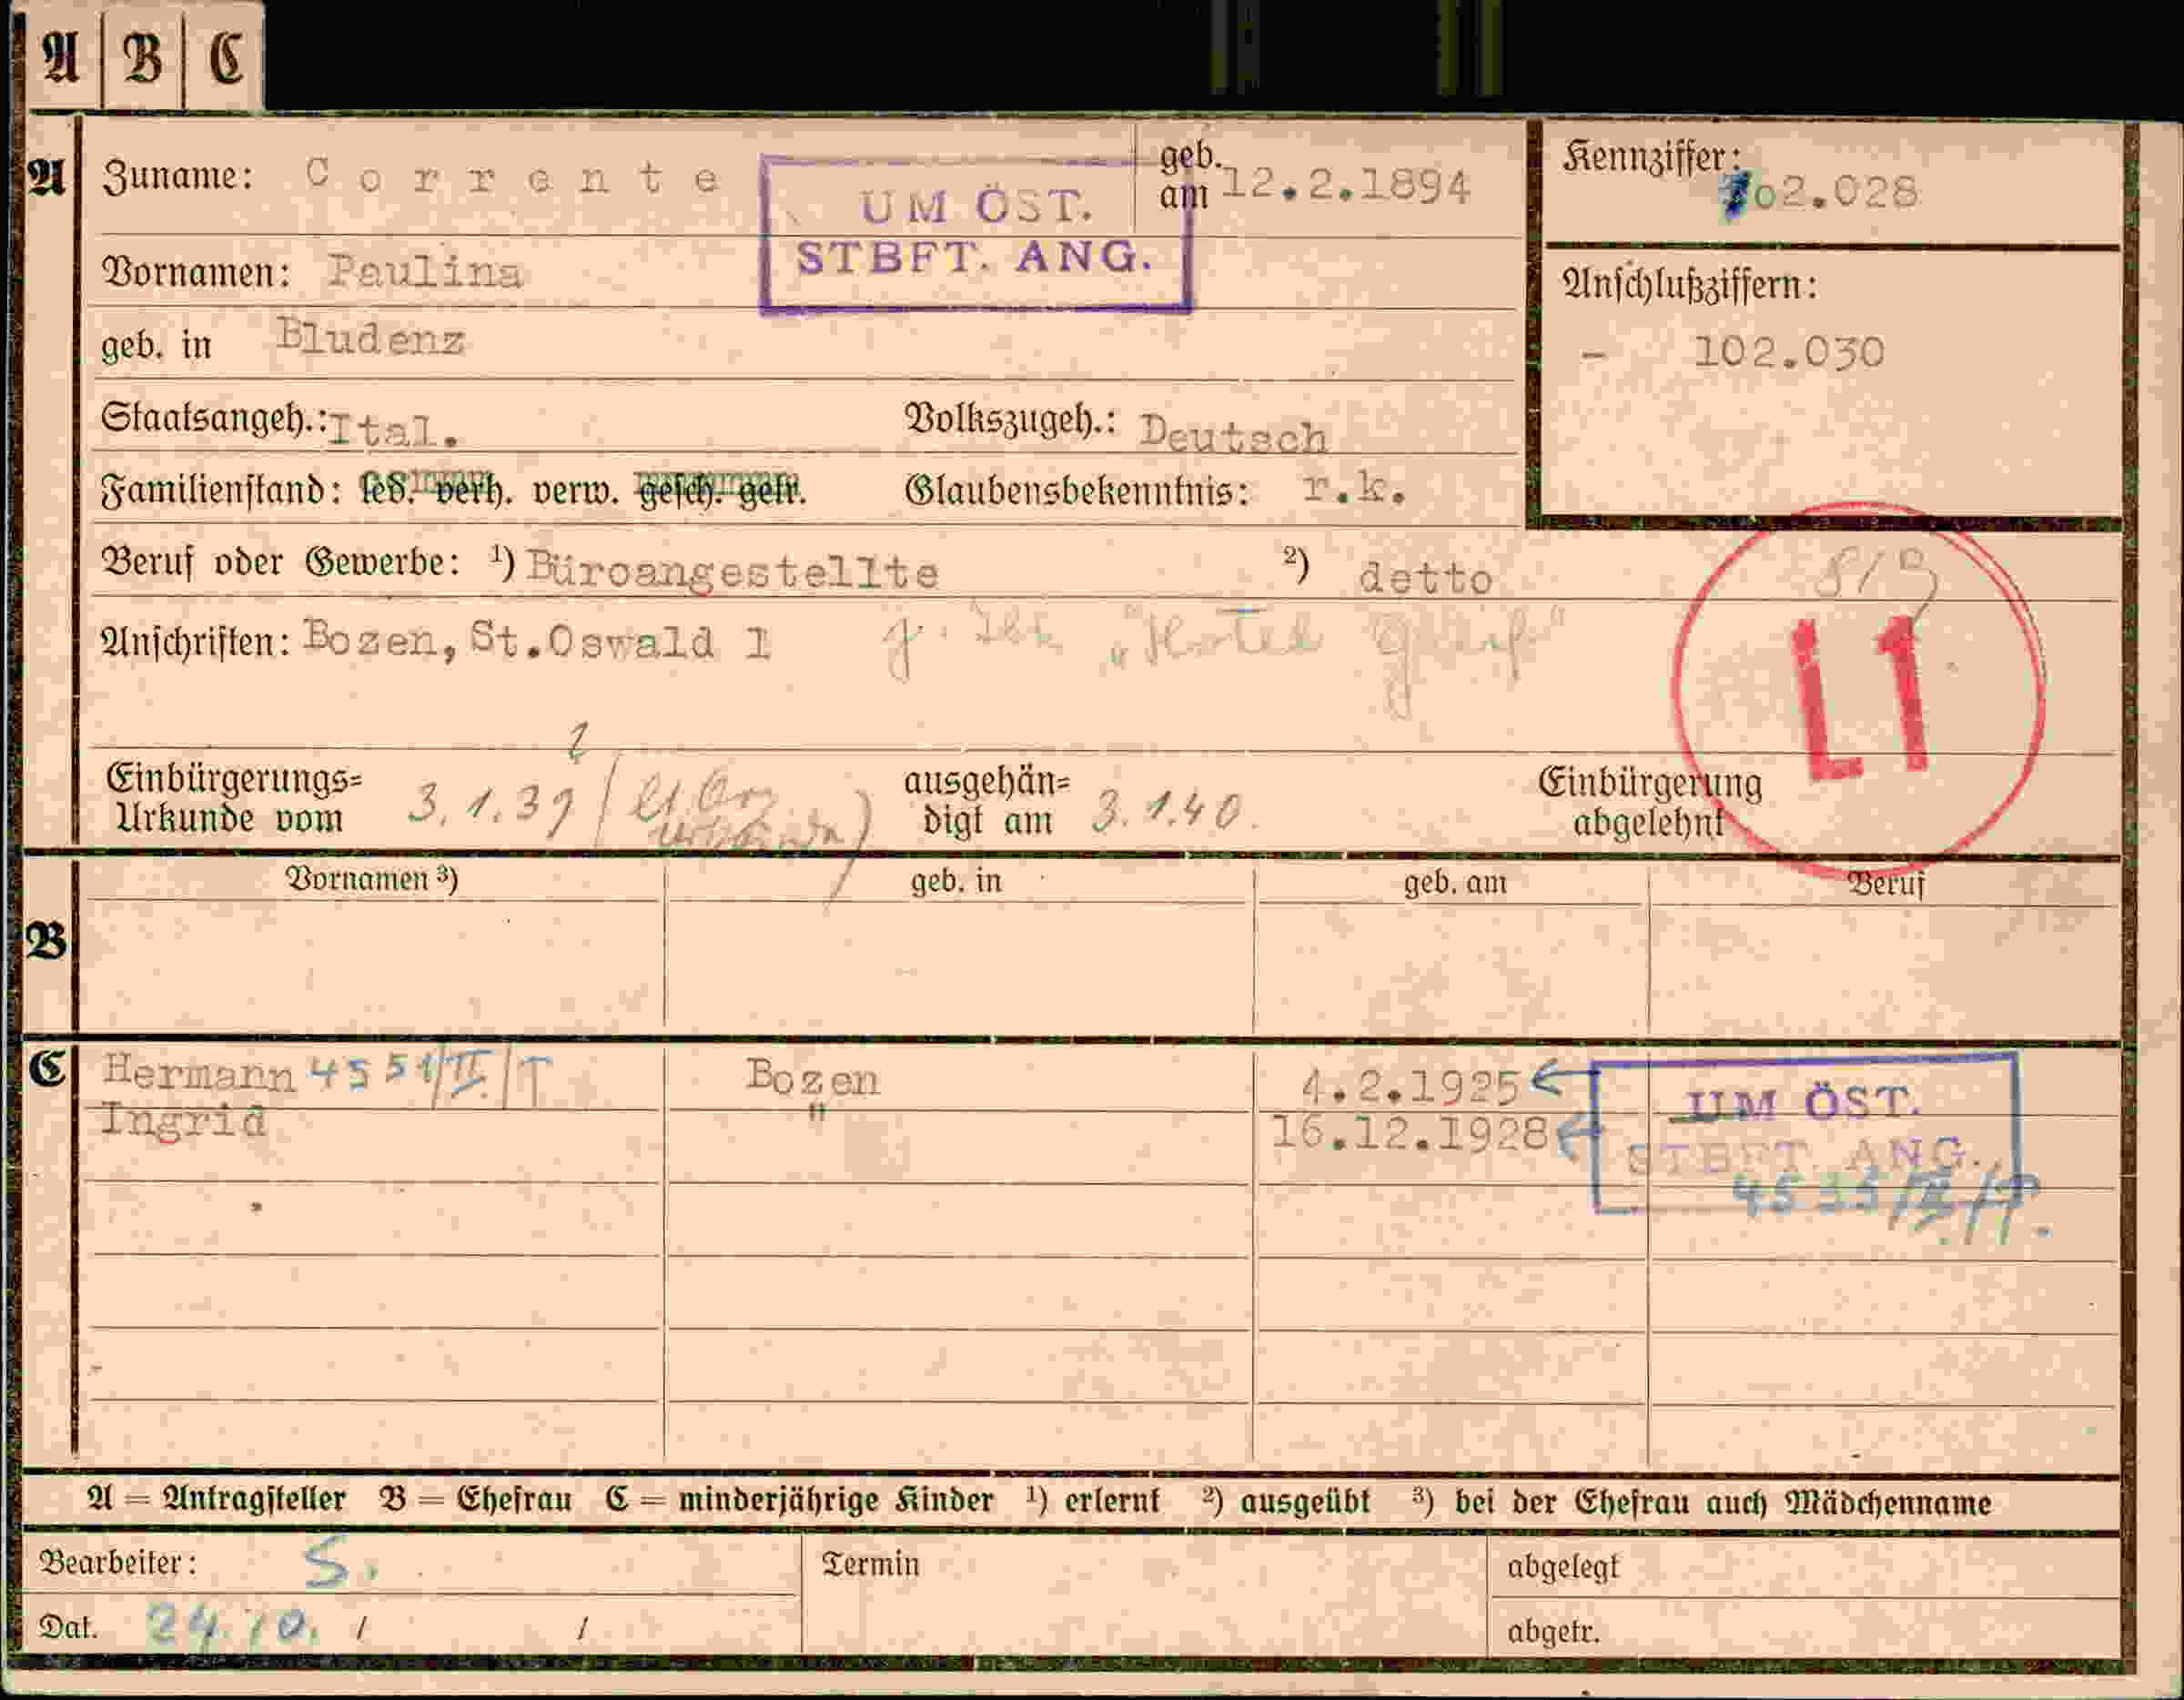 A B C
A Zuname: Corrente geb. am 12.2.1894
UM ÖST.
STBFT. ANG.
Kennziffer: 102.028
Vornamen: Paulina
Anschlußziffern:
- 102.030
geb. in Bludenz
Staatsangeh.: Ital. Volkszugeh.: Deutsch
Familienstand: led. verh. verw. gesch. getr. Glaubensbekenntnis: r.k.
Beruf oder Gewerbe: ¹) Büroangestellte ²) detto
Anschriften: Bozen, St.Oswald 1 "Hotel Greif"
L1
Einbürgerungs=
Urkunde vom 3.1.39
ausgehän=
digt am 3.1.40.
Einbürgerung
abgelehnt
Vornamen ³) geb. in geb. am Beruf
B
C Hermann 4551/II/T Bozen 4.2.1925
Ingrid " 16.12.1928
UM ÖST.
STBFT. ANG.
A = Antragsteller B = Ehefrau C = minderjährige Kinder ¹) erlernt ²) ausgeübt ³) bei der Ehefrau auch Mädchenname
Bearbeiter: S. Termin abgelegt
Dat. 24.10. / / abgetr.